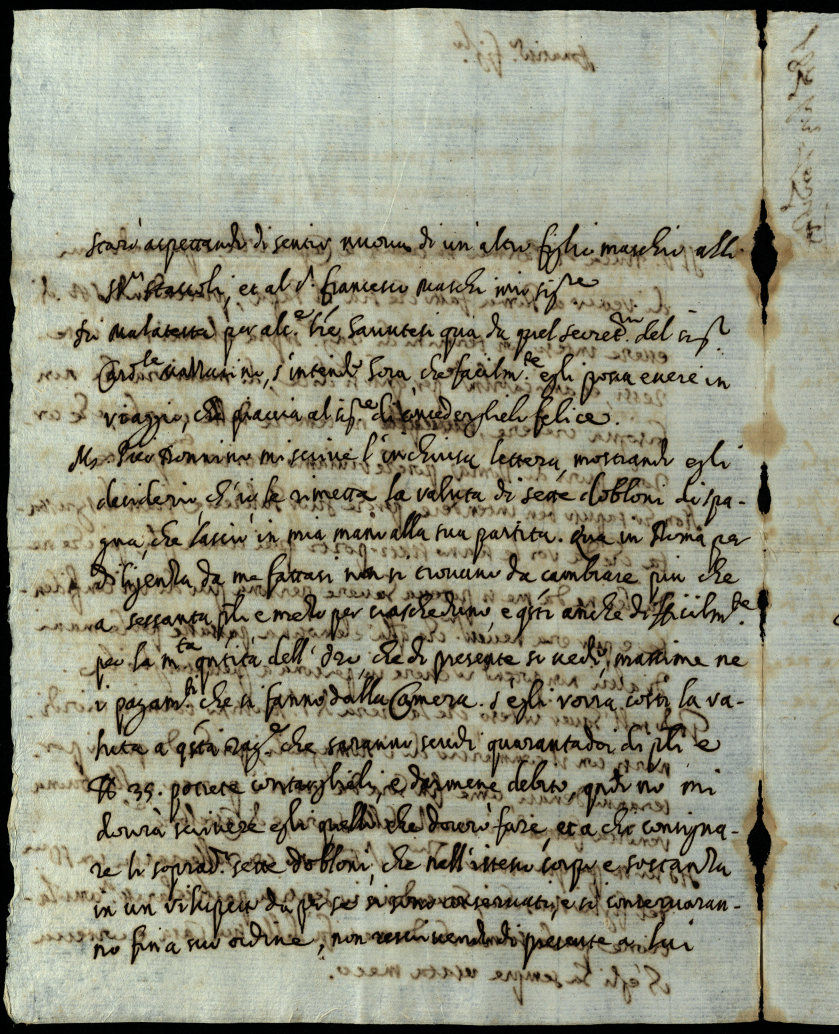 starò aspettando di sentir nuova di un altro figlio maschio alli
SS.ri Staccoli, et al S. Francesco Maschi mio sig.re
fu Malatesta per alc.e tré Santutesi quà da quel secret.rio del sig.r
Card.le Mazzarino, s'intende hora che facilm.te egli possa essere in
viaggio, che piaccia al sig.re di concederglielo felice.
Ms. Pier Donnino mi scrive l'inchiusa lettera, mostrando egli
desiderio, ch'io le rimetta la valuta di sette dobloni di spa-
gna, che lasciò in mia mano alla sua partita. Qua in Roma per
diligenza da me fattasi non si trovano da cambiare piu che
a sessanta pli e mezzo per ciascheduno, e q.sti anche difficilm.te
per la m.ta q.ntità dell'oro, che di presente si vede, massime ne
i pagam.ti che si fanno dalla Camera. S'egli vorrà così la va-
luta a q.sta rag.e che saranno scudi quarantadoi di pli e
35. potrete contarglieli, e darmene debito, quando no mi
dovrà scrivere egli quello che dovrò fare, et a chi consigna-
re li soprad.i sette dobloni, che nell'istesso corpo e sostanza
in un viluppo da per se si sono conservati, e si conservaran-
no fin a suo ordine, non
presente a lui